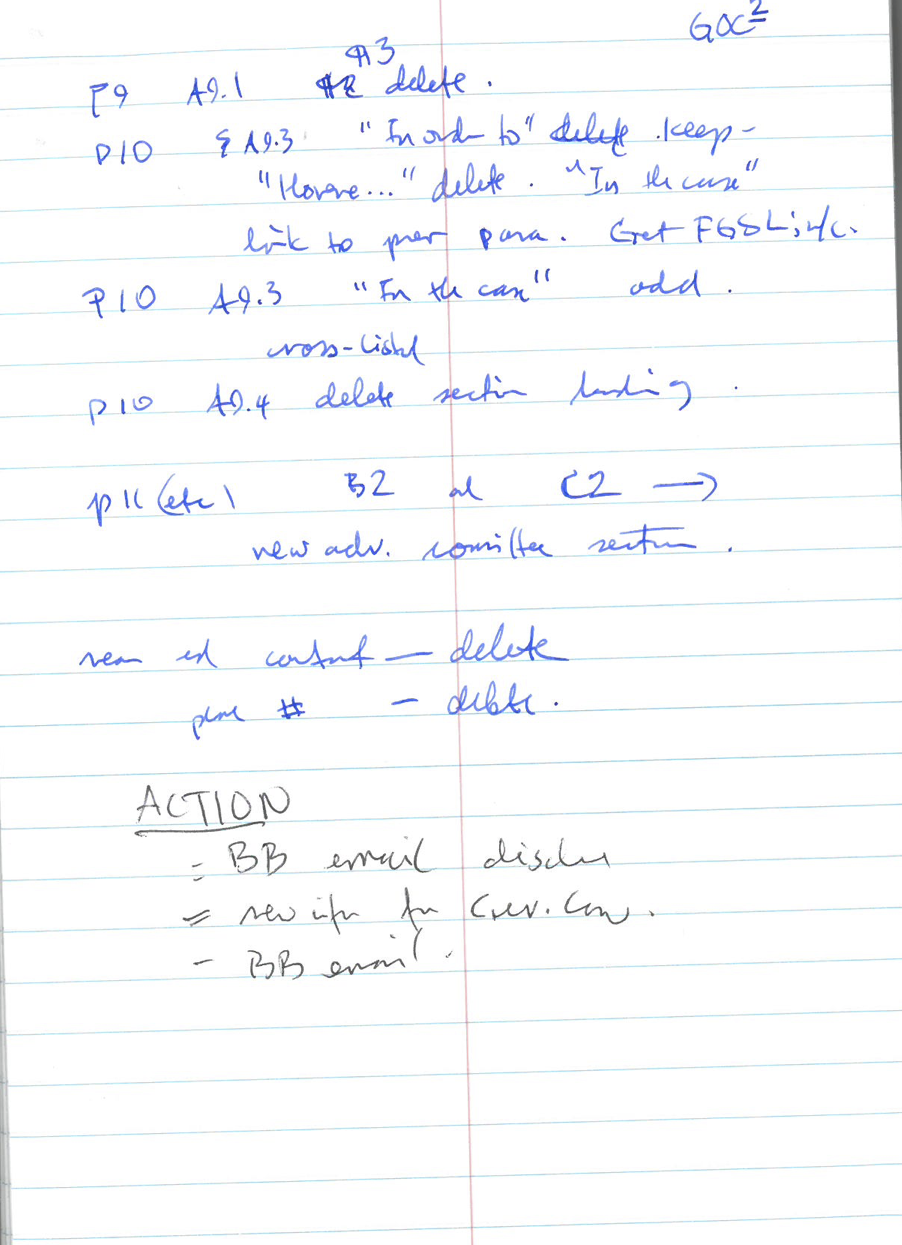 GOC 2
¶3
P9 A9.1 delete.
P10 § A9.3 "In order to" delete. keep -
"However..." delete. "In the case"
link to prev para. Get FGSL
P10 A9.3 "In the case" add.
cross-listed
P10 A9.4 delete section heading.
p11 (etc) B2 and C2 →
new adv. committee section.
delete
# - delete.
ACTION
- BB email
= new info for
- BB email.